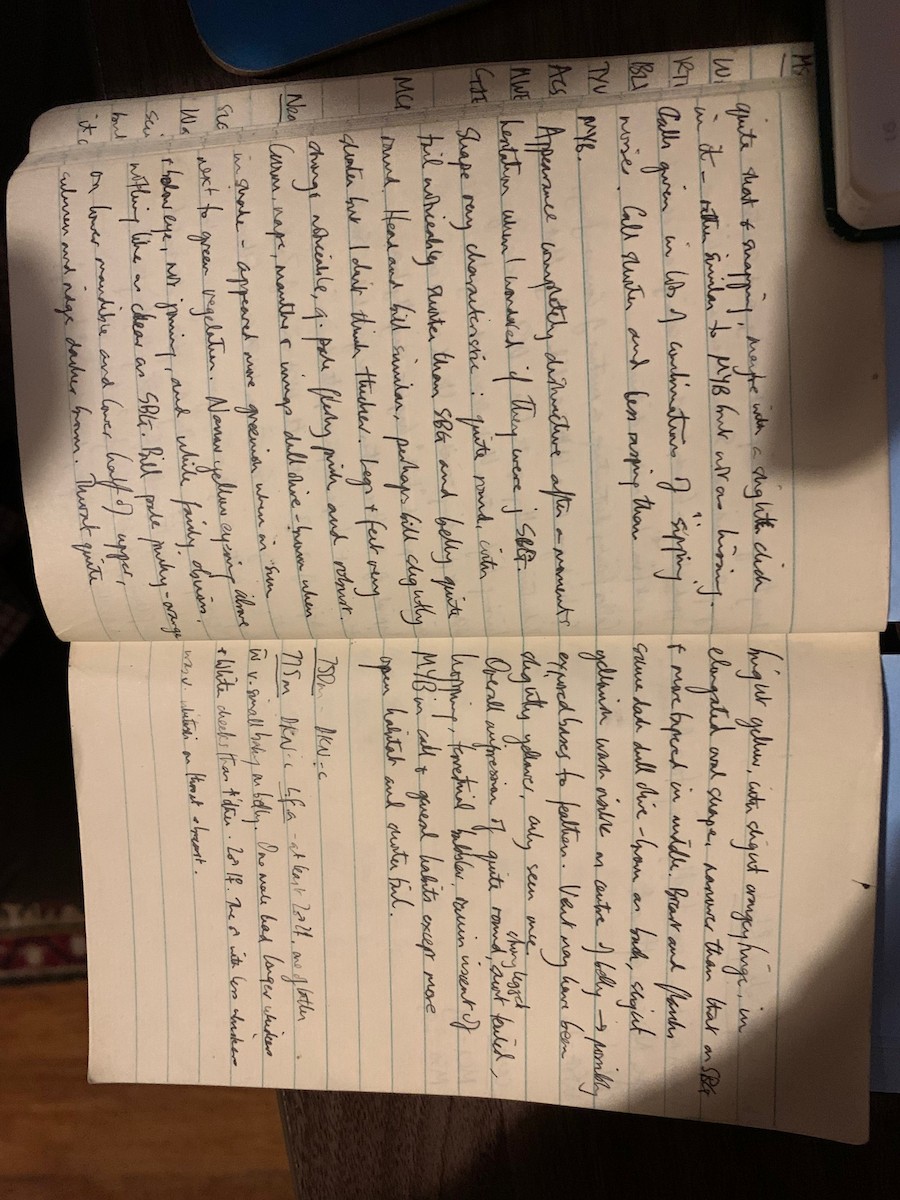 quite short & snapping, maybe with a slightly click
in it - rather similar to MYB but not as hissing.
Calls given in lots of combinations of sipping
noises. Call shorter and less rasping than
MYB.
Appearance completely distinctive after a moments
hesitation when I wondered if they were j SBG.
Shape very characteristic: quite round, with
tail noticeably shorter than SBG and belly quite
round. Head and bill similar, perhaps bill slightly
shorter but I don't think thicker. Legs + feet very
strong & noticeable, q. pale fleshy pink and robust.
Crown, nape, mantle & wings dull olive-brown when
in shade - appeared more greenish when in sun
next to green vegetation. Narrow yellow eyering above
+ below eye, not joining, and while fairly obvious,
nothing like as clear as SBG. Bill pale pinky-orange
on lower mandible and lower half of upper,
culmen and ridge darker brown. Throat quite
bright yellow, with slight orangey tinge, in
elongated oval shape, narrower than that on SBG
& more tapered in middle. Breast and flanks
same dark dull olive-brown as back, slight
yellowish wash visible on centre of belly → possibly
exposed bases to feathers. Vent may have been
slightly yellower, only seen once.
Overall impression of quite round, short tailed,
strong legged
hopping, terrestrial babbler, reminiscent of
MYB in call & general habits except more
open habitat and shorter tail.
750m DKN-c
775m DKN-c
- at least 2♂ 2♀, one of latter
v. small
on belly. One male had longer
+ white cheeks than other.
with less
on throat + breast.
MS
RTI
BBL
TYV
ACS
MWE
GTE
MCF
Nea